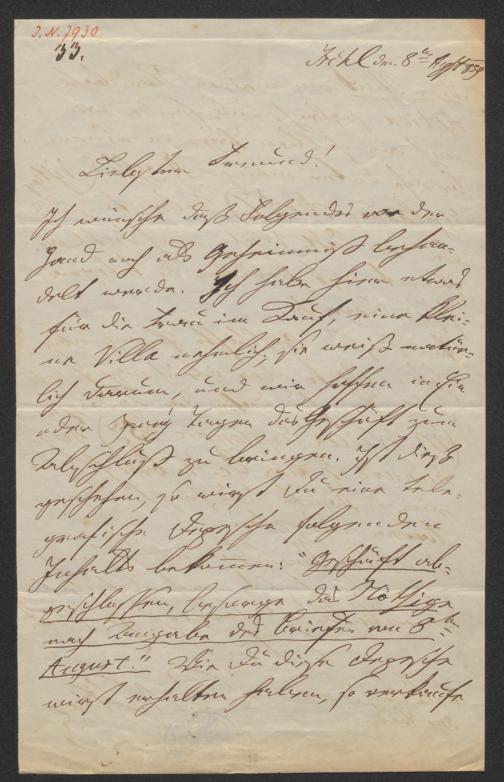 J.N. 7930
33.
Ischl den 8ten Augst 859
Liebster Freund!
Ich wünsche daß Folgendes vor der
Hand noch als Geheimniß behan-
delt werde. Ich habe hier etwas
für die Frau im Kauf, eine klei-
ne Villa nehmlich, sie weiß natür-
lich darum, und wir hoffen in ein
oder zwey Tagen das Geschäft zum
Abschluß zu bringen. Ist dieß
geschehen, so wirst du eine tele-
grafische Depesche folgenden
Inhalts bekommen: "Geschäft ab-
geschlossen, besorge das Nöthige
nach Angabe des Briefes vom 8ten
August." Wie du diese Depesche
wirst erhalten haben, so verkaufe